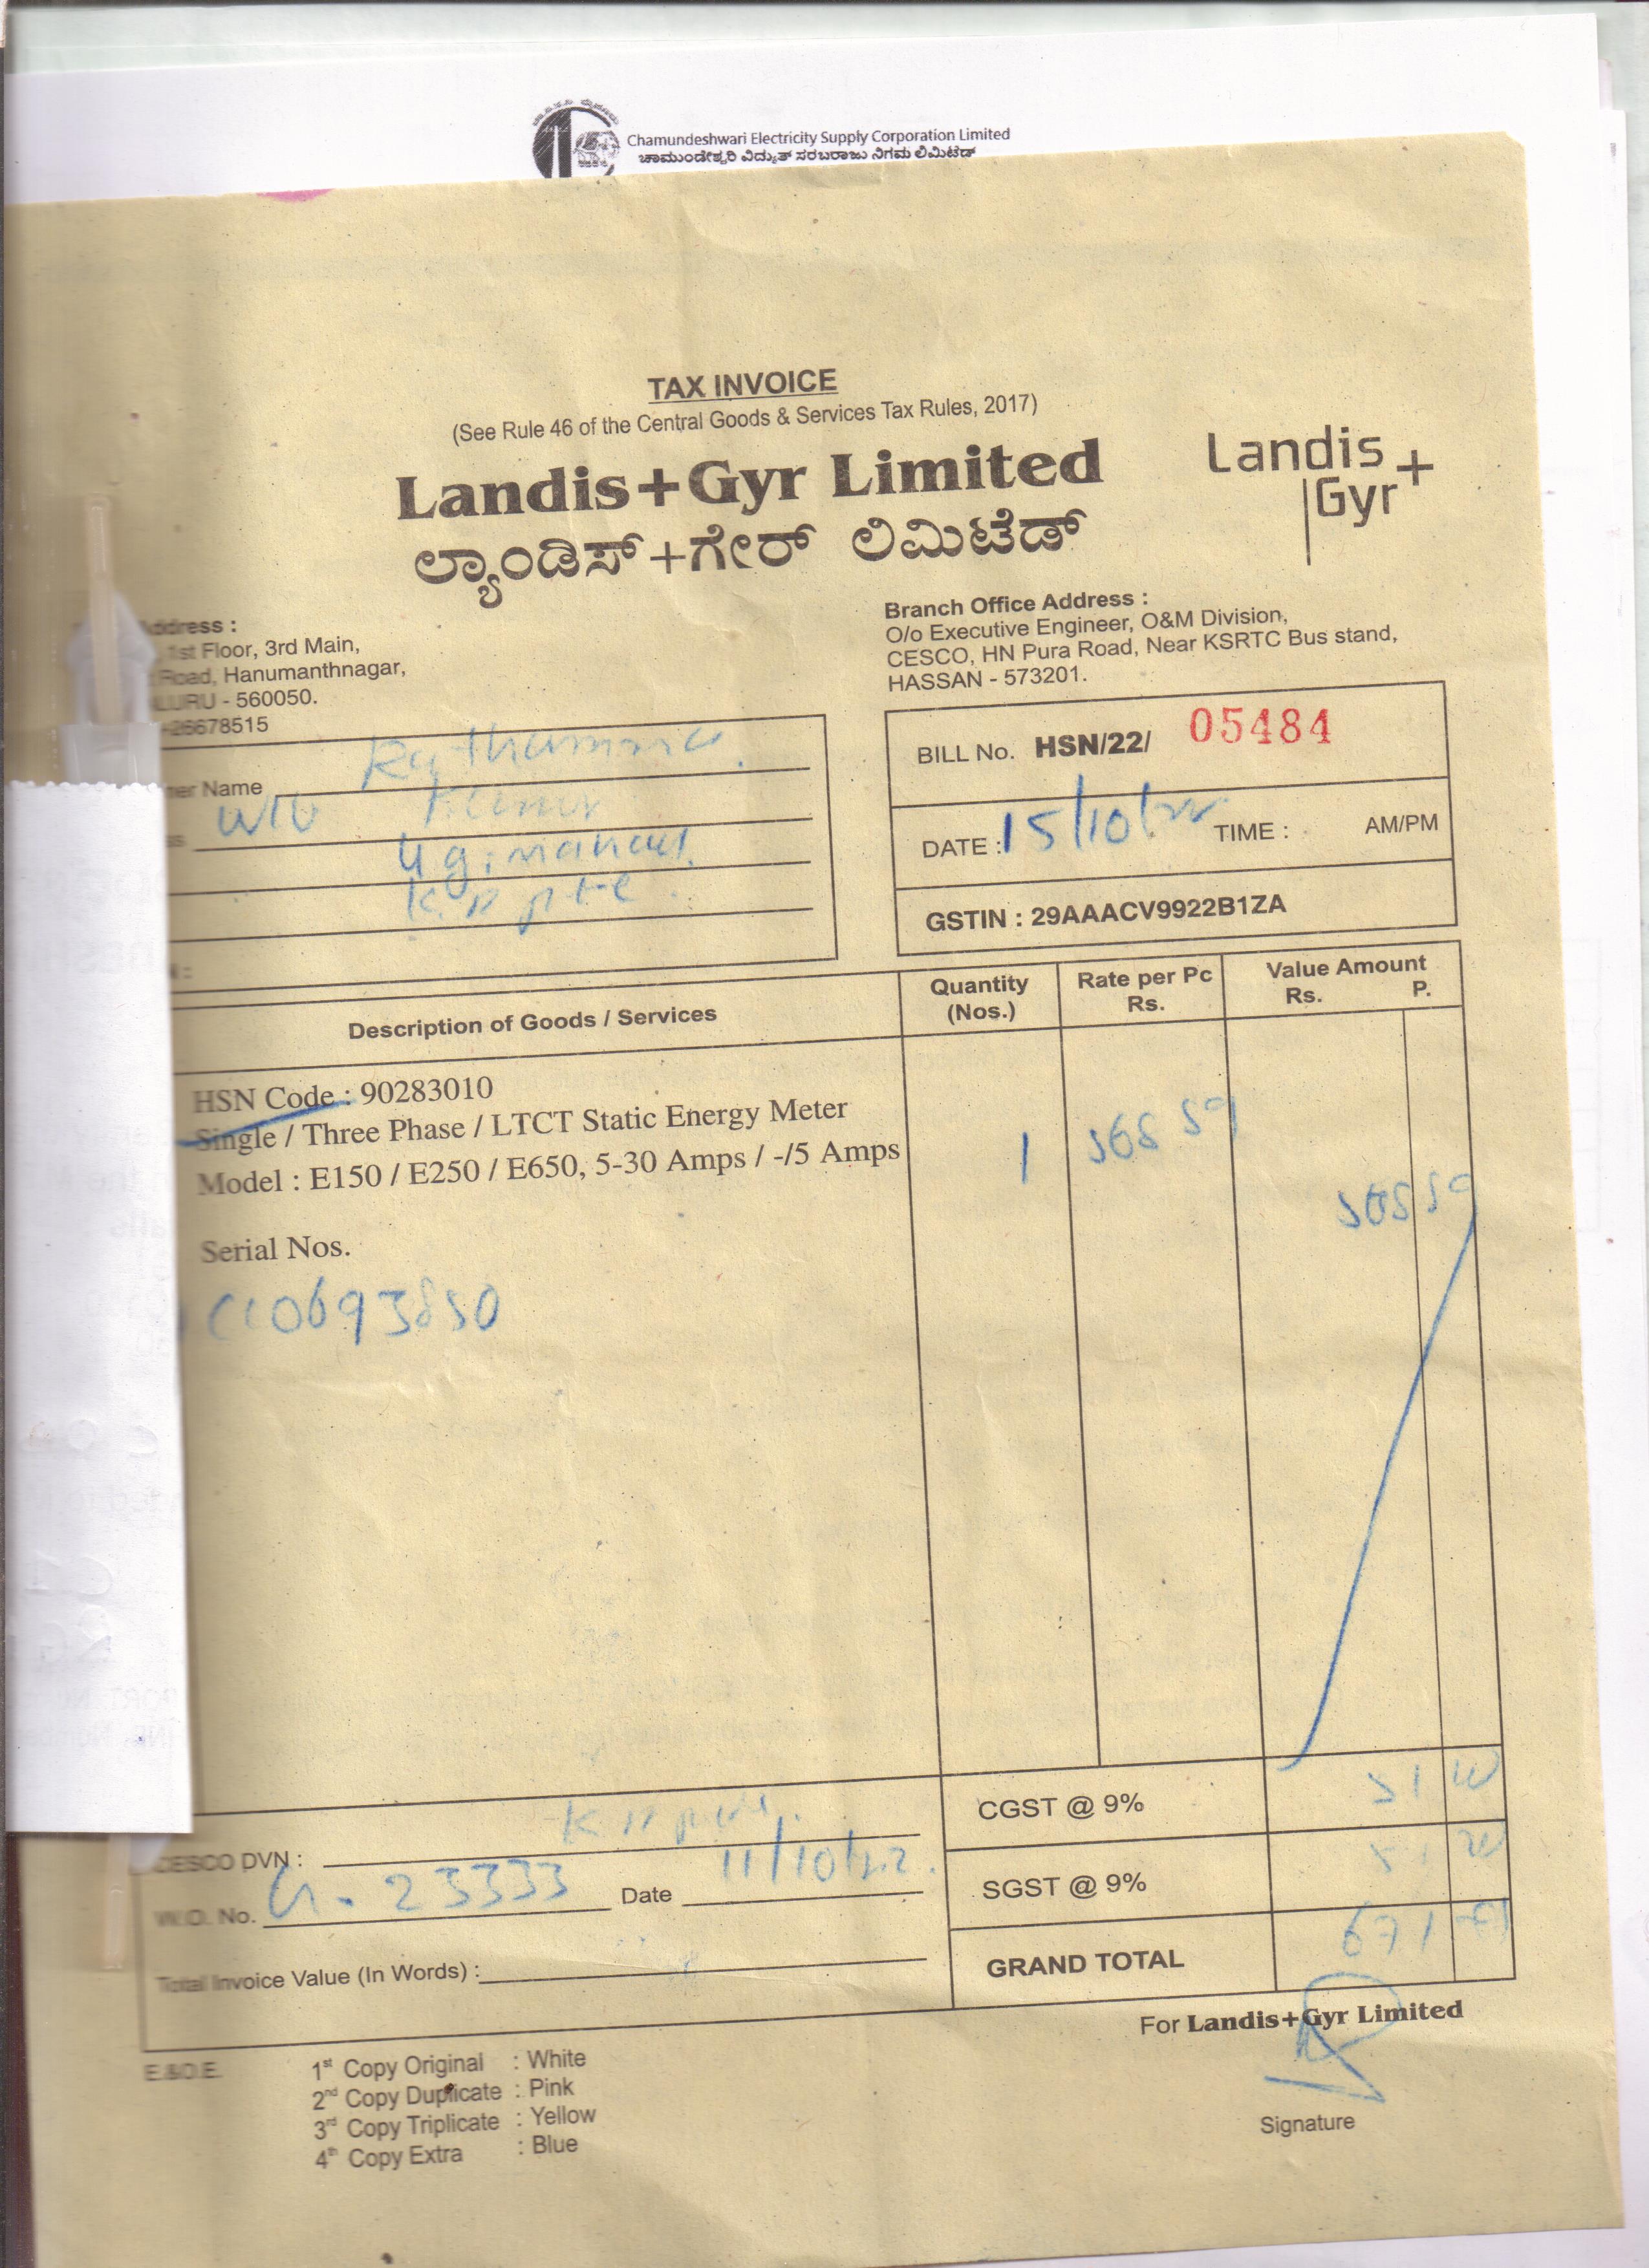 Chamundeshwari Electricity Supply Corporation Limited
ಚಾಮುಂಡೇಶ್ವರಿ ವಿದ್ಯುತ್ ಸರಬರಾಜು ನಿಗಮ ಲಿಮಿಟೆಡ್
TAX INVOICE
(See Rule 46 of the Central Goods & Services Tax Rules, 2017)
Landis+Gyr Limited
ಲ್ಯಾಂಡಿಸ್+ಗೇರ್ ಲಿಮಿಟೆಡ್
Landis
Gyr+
ddress :
1st Floor, 3rd Main,
Road, Hanumanthnagar,
LURU - 560050.
26678515
Branch Office Address :
O/o Executive Engineer, O&M Division,
CESCO, HN Pura Road, Near KSRTC Bus stand,
HASSAN - 573201.
mer Name
BILL No. HSN/22/ 05484
DATE : 15/10/22 TIME : AM/PM
GSTIN : 29AAACV9922B1ZA
Description of Goods / Services
Quantity (Nos.)
Rate per Pc Rs.
Value Amount Rs. P.
HSN Code : 90283010
Single / Three Phase / LTCT Static Energy Meter
Model : E150 / E250 / E650, 5-30 Amps / -/5 Amps
1
Serial Nos.
CGST @ 9%
SGST @ 9%
GRAND TOTAL 671
CESCO DVN :
W.O. No. 23333 Date 11/10/22
Total Invoice Value (In Words) :
For Landis+Gyr Limited
Signature
E.&O.E.
1st Copy Original : White
2nd Copy Duplicate : Pink
3rd Copy Triplicate : Yellow
4th Copy Extra : Blue